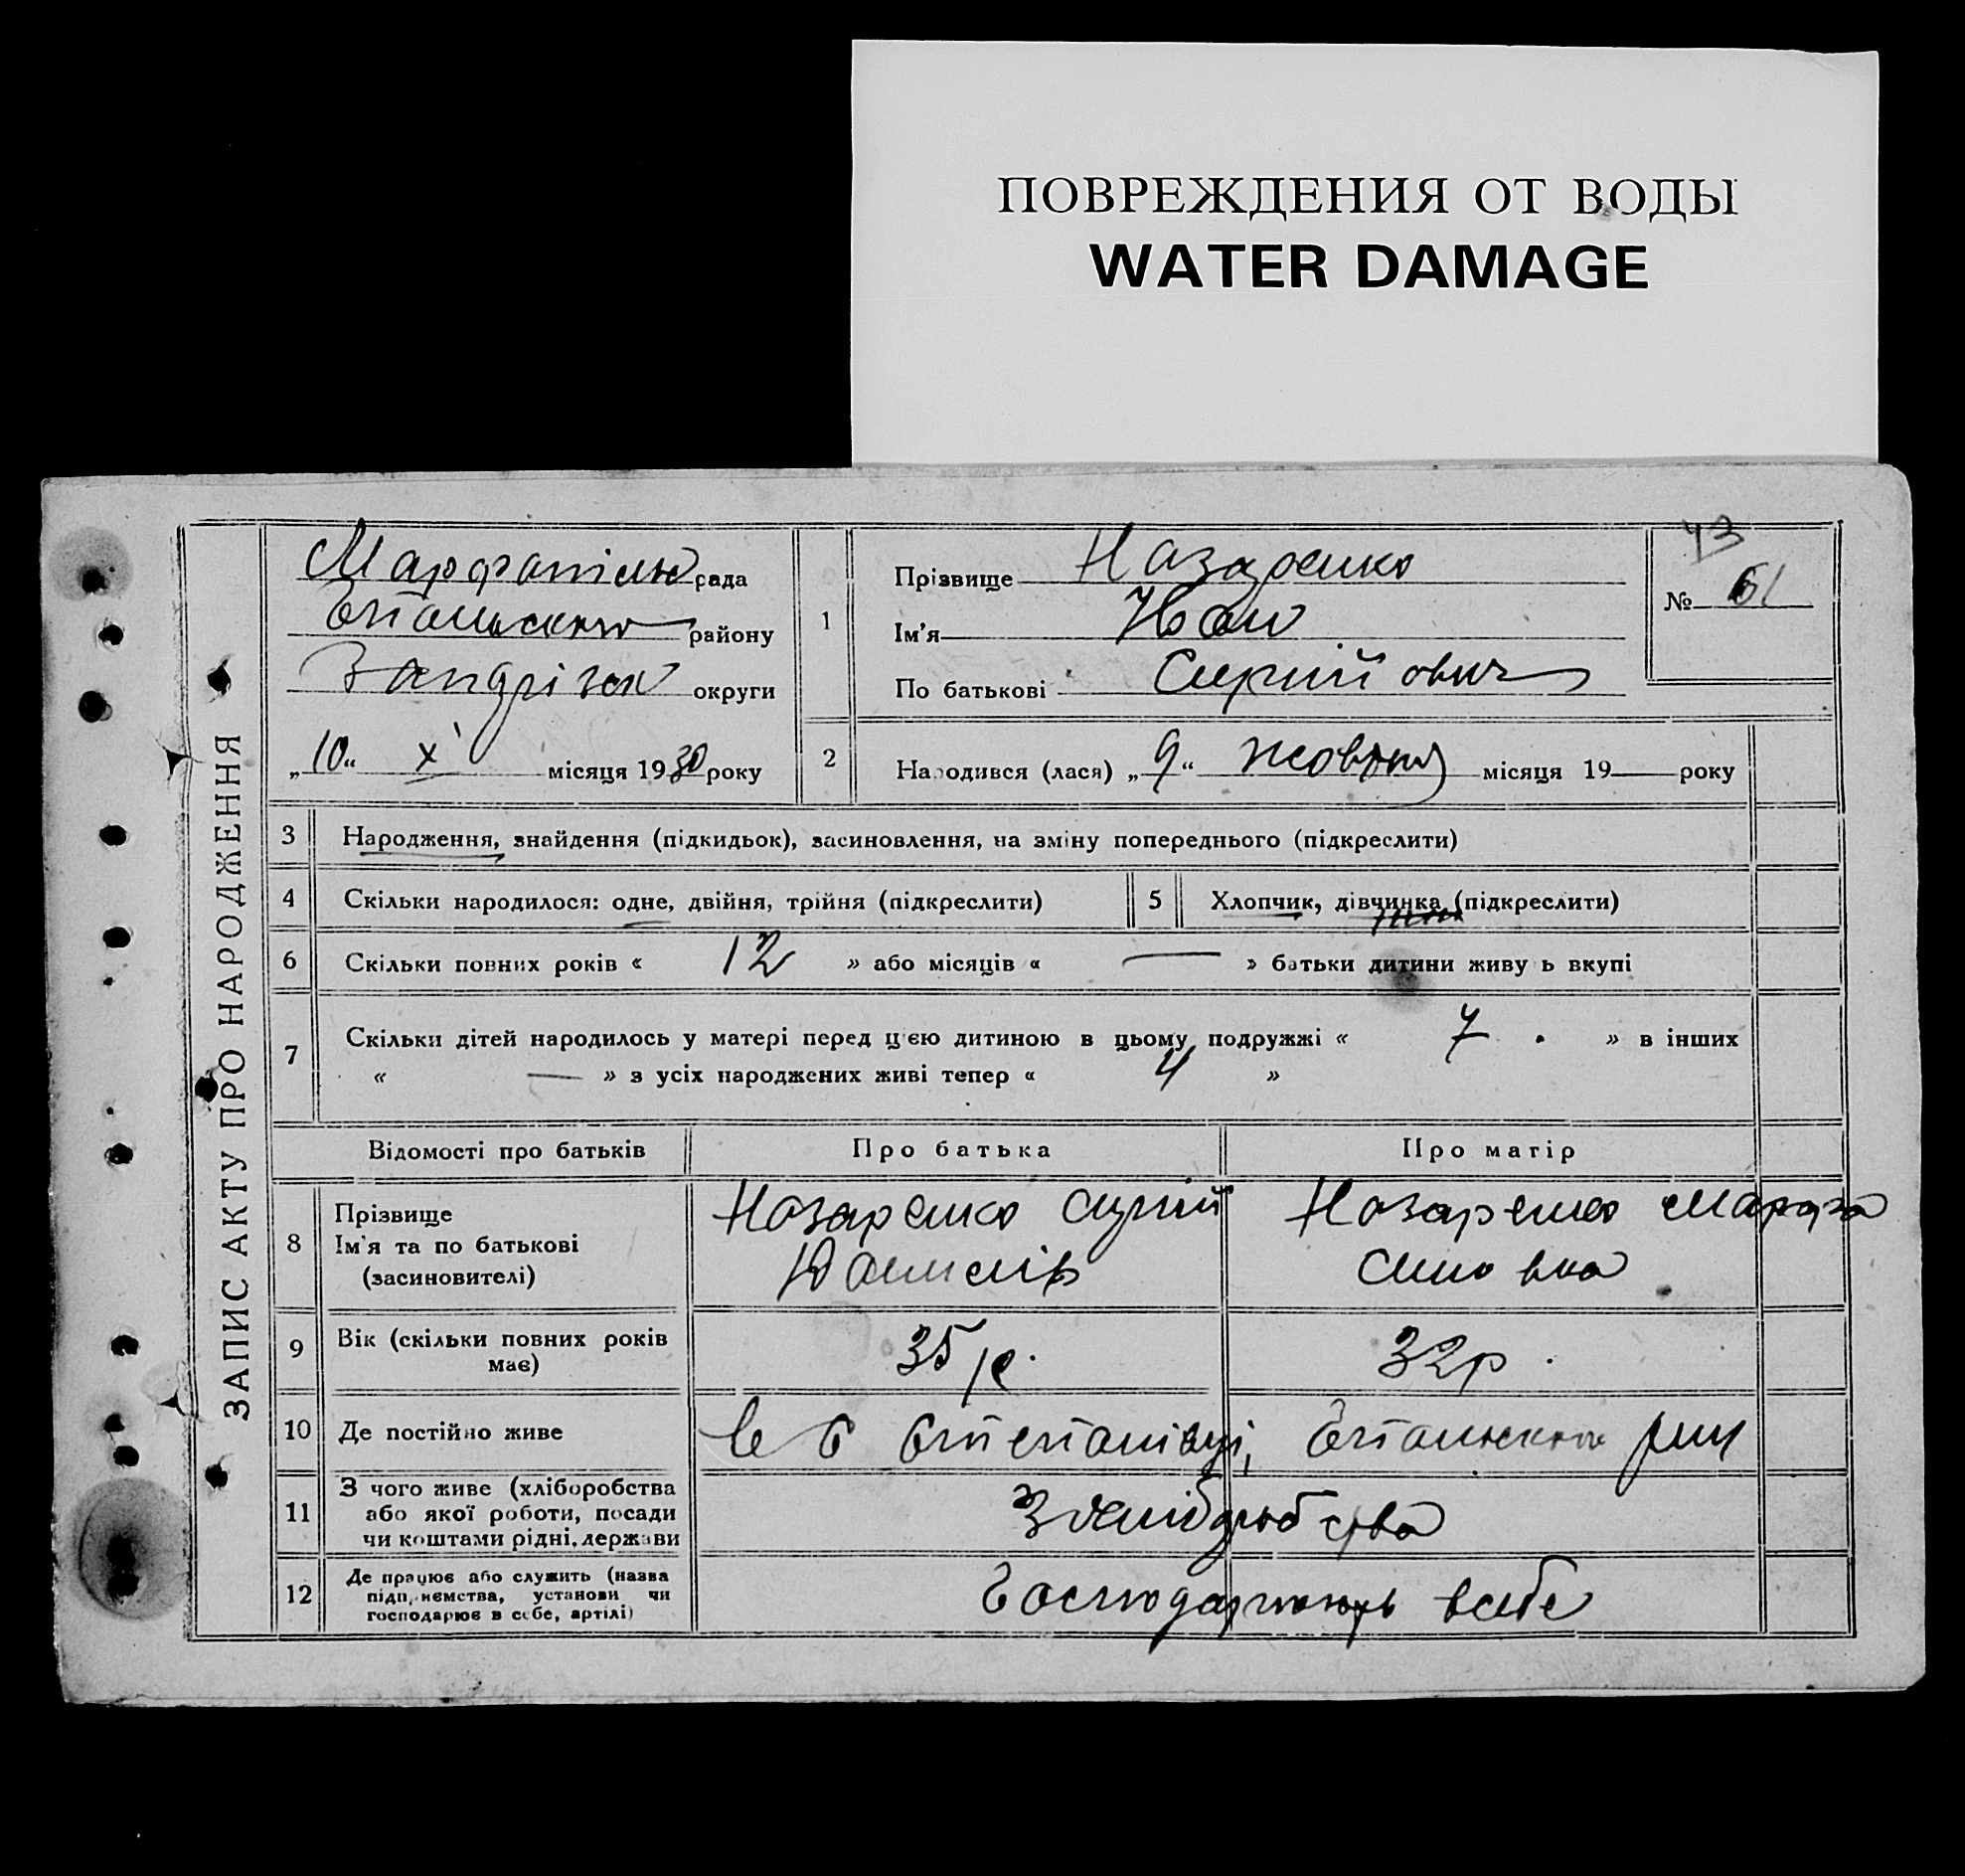 ПОВРЕЖДЕНИЯ ОТ ВОДЫ
WATER DAMAGE
ЗАПИС АКТУ ПРО НАРОДЖЕННЯ
рада
району
округи
„10“ X місяця 1930 року
1
Прізвище Назаренко
Ім'я Іван
По батькові Сергійович
43
№ 61
2
Народився (лася) „9“ жовтня місяця 19— року
3 Народження, знайдення (підкидьок), засиновлення, на зміну попереднього (підкреслити)
4 Скільки народилося: одне, двійня, трійня (підкреслити)
5 Хлопчик, дівчинка (підкреслити)
6 Скільки повних років « 12 » або місяців « — » батьки дитини живуть вкупі
7 Скільки дітей народилось у матері перед цією дитиною в цьому подружжі « 7 » в інших
« — » з усіх народжених живі тепер « 4 »
Відомості про батьків
Про батька
Про матір
8
Прізвище
Ім'я та по батькові
(засиновителі)
Назаренко Сергій
Назаренко Марфа
9
Вік (скільки повних років
має)
35 р.
32 р.
10 Де постійно живе
11
З чого живе (хліборобства
або якої роботи, посади
чи коштами рідні, держави
З хліборобства
12
Де працює або служить (назва
підприємства, установи чи
господарює в себе, артілі)
Господарюють в себе